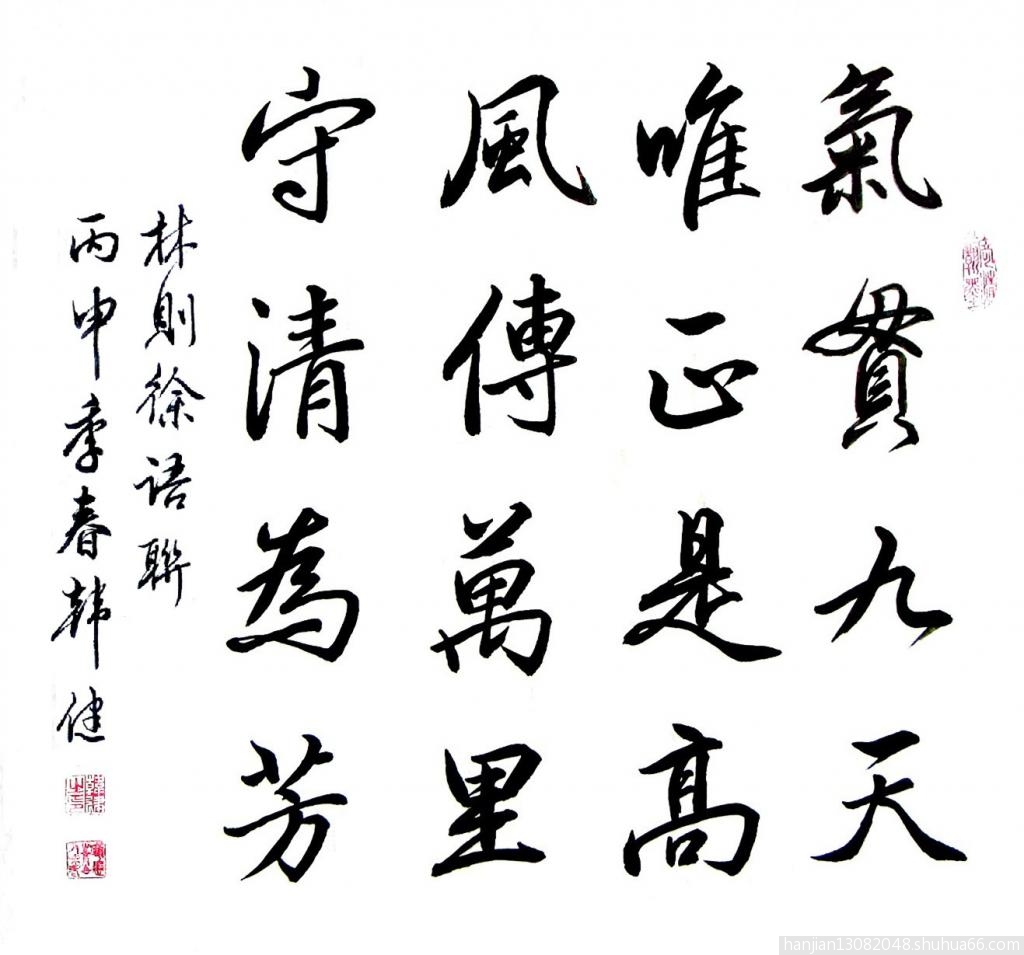 氣貫九天
唯正是高
風傳萬里
守清為芳
林則徐语聯
丙申季春韩健
hanjian13082048.shuhua66.com